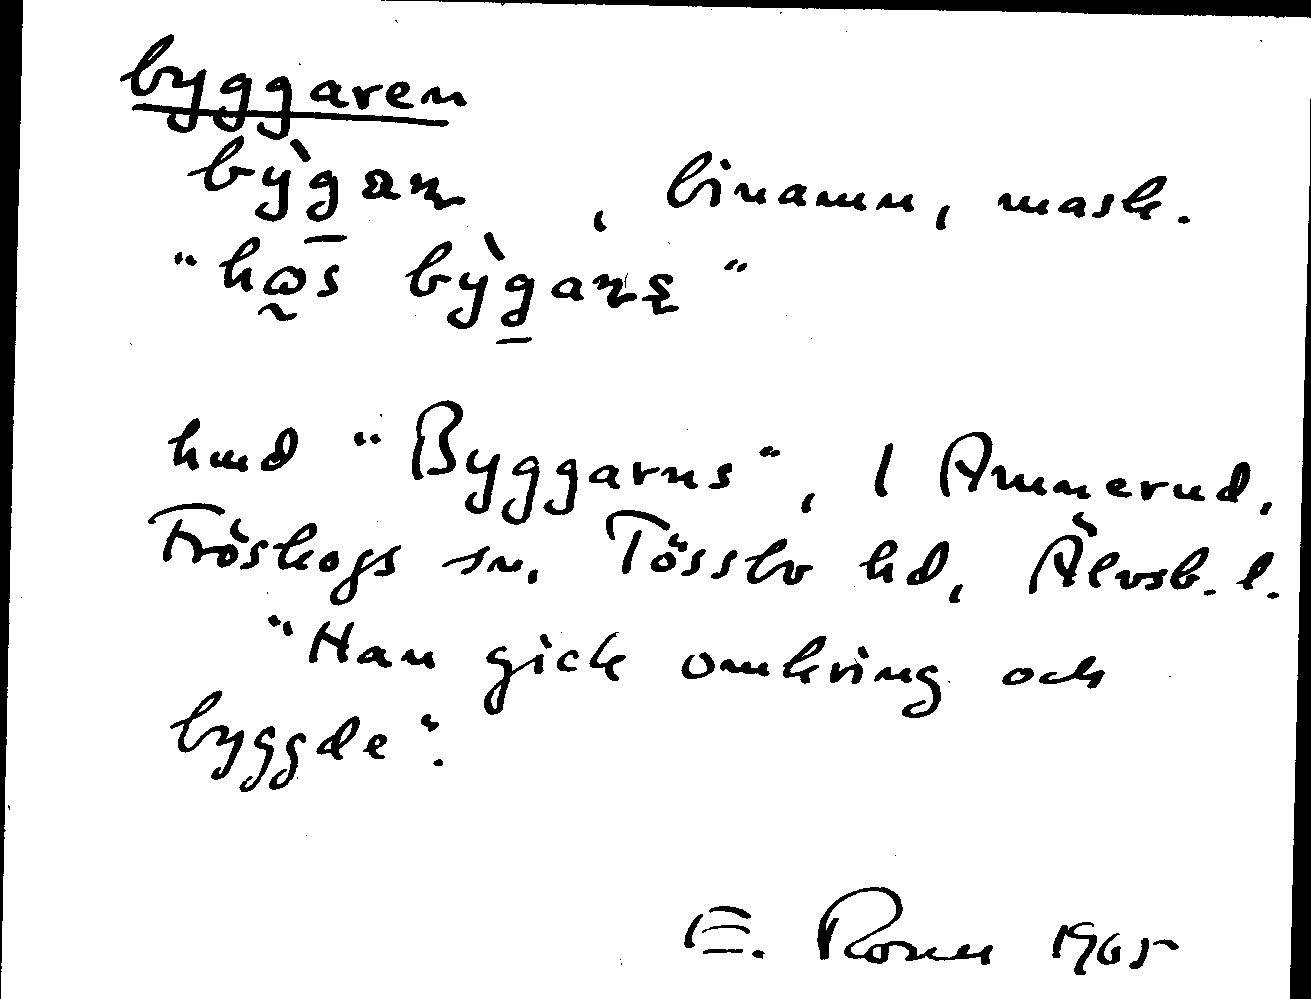 byggaren
bỳg̱aɳ, binamn, mask.
"hɷ̰s bỳg̱aɳʂ"
hmd "Byggarns", 1 Ammerud,
Fröskogs sn, Tössbo hd, Älvsb. l.
"Han gick omkring och
byggde".
E. 1965